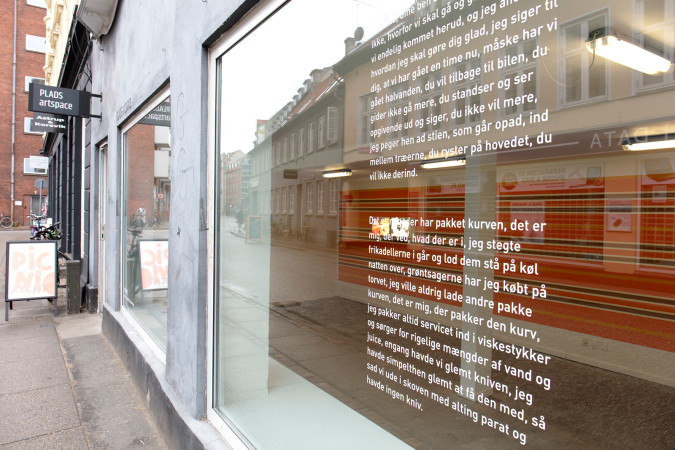 PLADS
artspace
Astrup &
Karsvik
PIC
NIC
PIC
NIC
ikke, hvorfor vi skal gå og g
vi endelig kommet herud, og jeg ån
hvordan jeg skal gøre dig glad, jeg siger til
dig, at vi har gået en time nu, måske har vi
gået halvanden, du vil tilbage til bilen, du
gider ikke gå mere, du standser og ser
opgivende ud og siger, du ikke vil mere,
jeg peger hen ad stien, som går opad, ind
mellem træerne, du ryster på hovedet, du
vil ikke derind.
har pakket kurven, det er
mig, der ved, hvad der er i, jeg stegte
frikadellerne i går og lod dem stå på køl
natten over, grøntsagerne har jeg købt på
torvet, jeg ville aldrig lade andre pakke
kurven, det er mig, der pakker den kurv,
jeg pakker altid servicet ind i viskestykker
og sørger for rigelige mængder af vand og
juice, engang havde vi glemt kniven, jeg
havde simpelthen glemt at få den med, så
sad vi ude i skoven med alting parat og
havde ingen kniv.